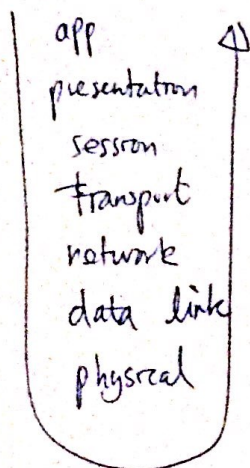 app
presentation
session
transport
network
data link
physical